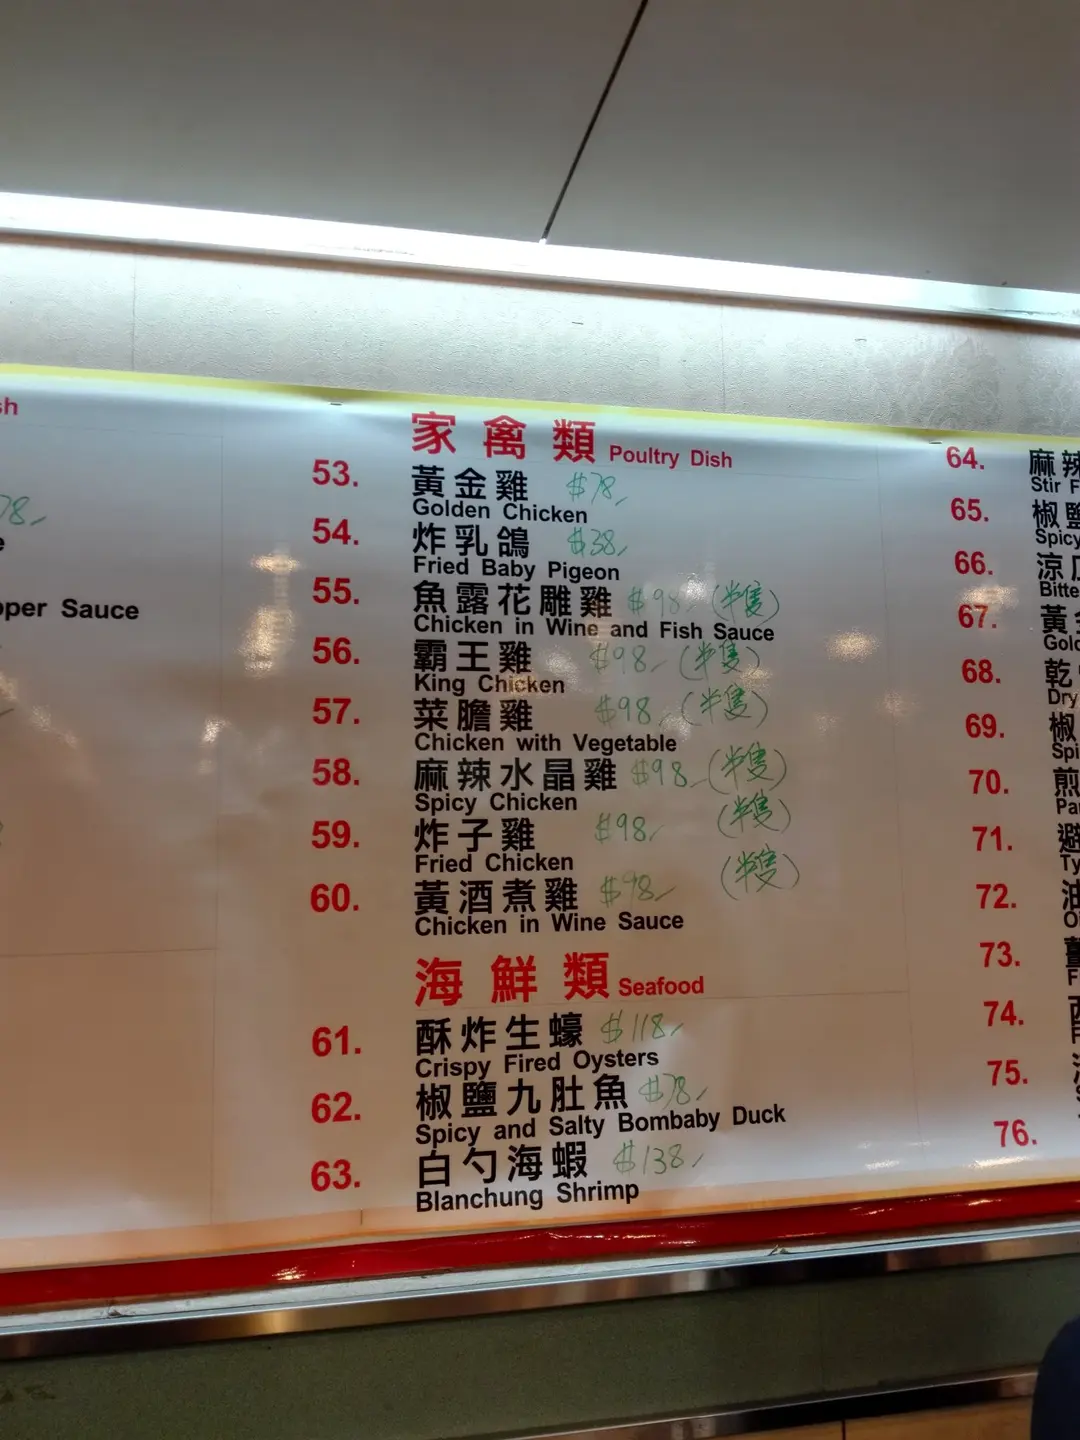 sh
78
e
pper Sauce
家禽類 Poultry Dish
53. 黃金雞 $78
Golden Chicken
54. 炸乳鴿 $38
Fried Baby Pigeon
55. 魚露花雕雞 $98 (半隻)
Chicken in Wine and Fish Sauce
56. 霸王雞 $98 (半隻)
King Chicken
57. 菜膽雞 $98 (半隻)
Chicken with Vegetable
58. 麻辣水晶雞 $98 (半隻)
Spicy Chicken
59. 炸子雞 $98 (半隻)
Fried Chicken
60. 黃酒煮雞 $98 (半隻)
Chicken in Wine Sauce
海鮮類 Seafood
61. 酥炸生蠔 $118
Crispy Fired Oysters
62. 椒鹽九肚魚 $78
Spicy and Salty Bombaby Duck
63. 白勺海蝦 $138
Blanchung Shrimp
64. 麻辣
Stir F
65. 椒鹽
Spicy
66. 涼瓜
Bitte
67. 黃金
Gold
68. 乾
Dry
69. 椒
Spi
70. 煎
Pa
71. 避
Ty
72. 油
73.
F
74.
75.
76.